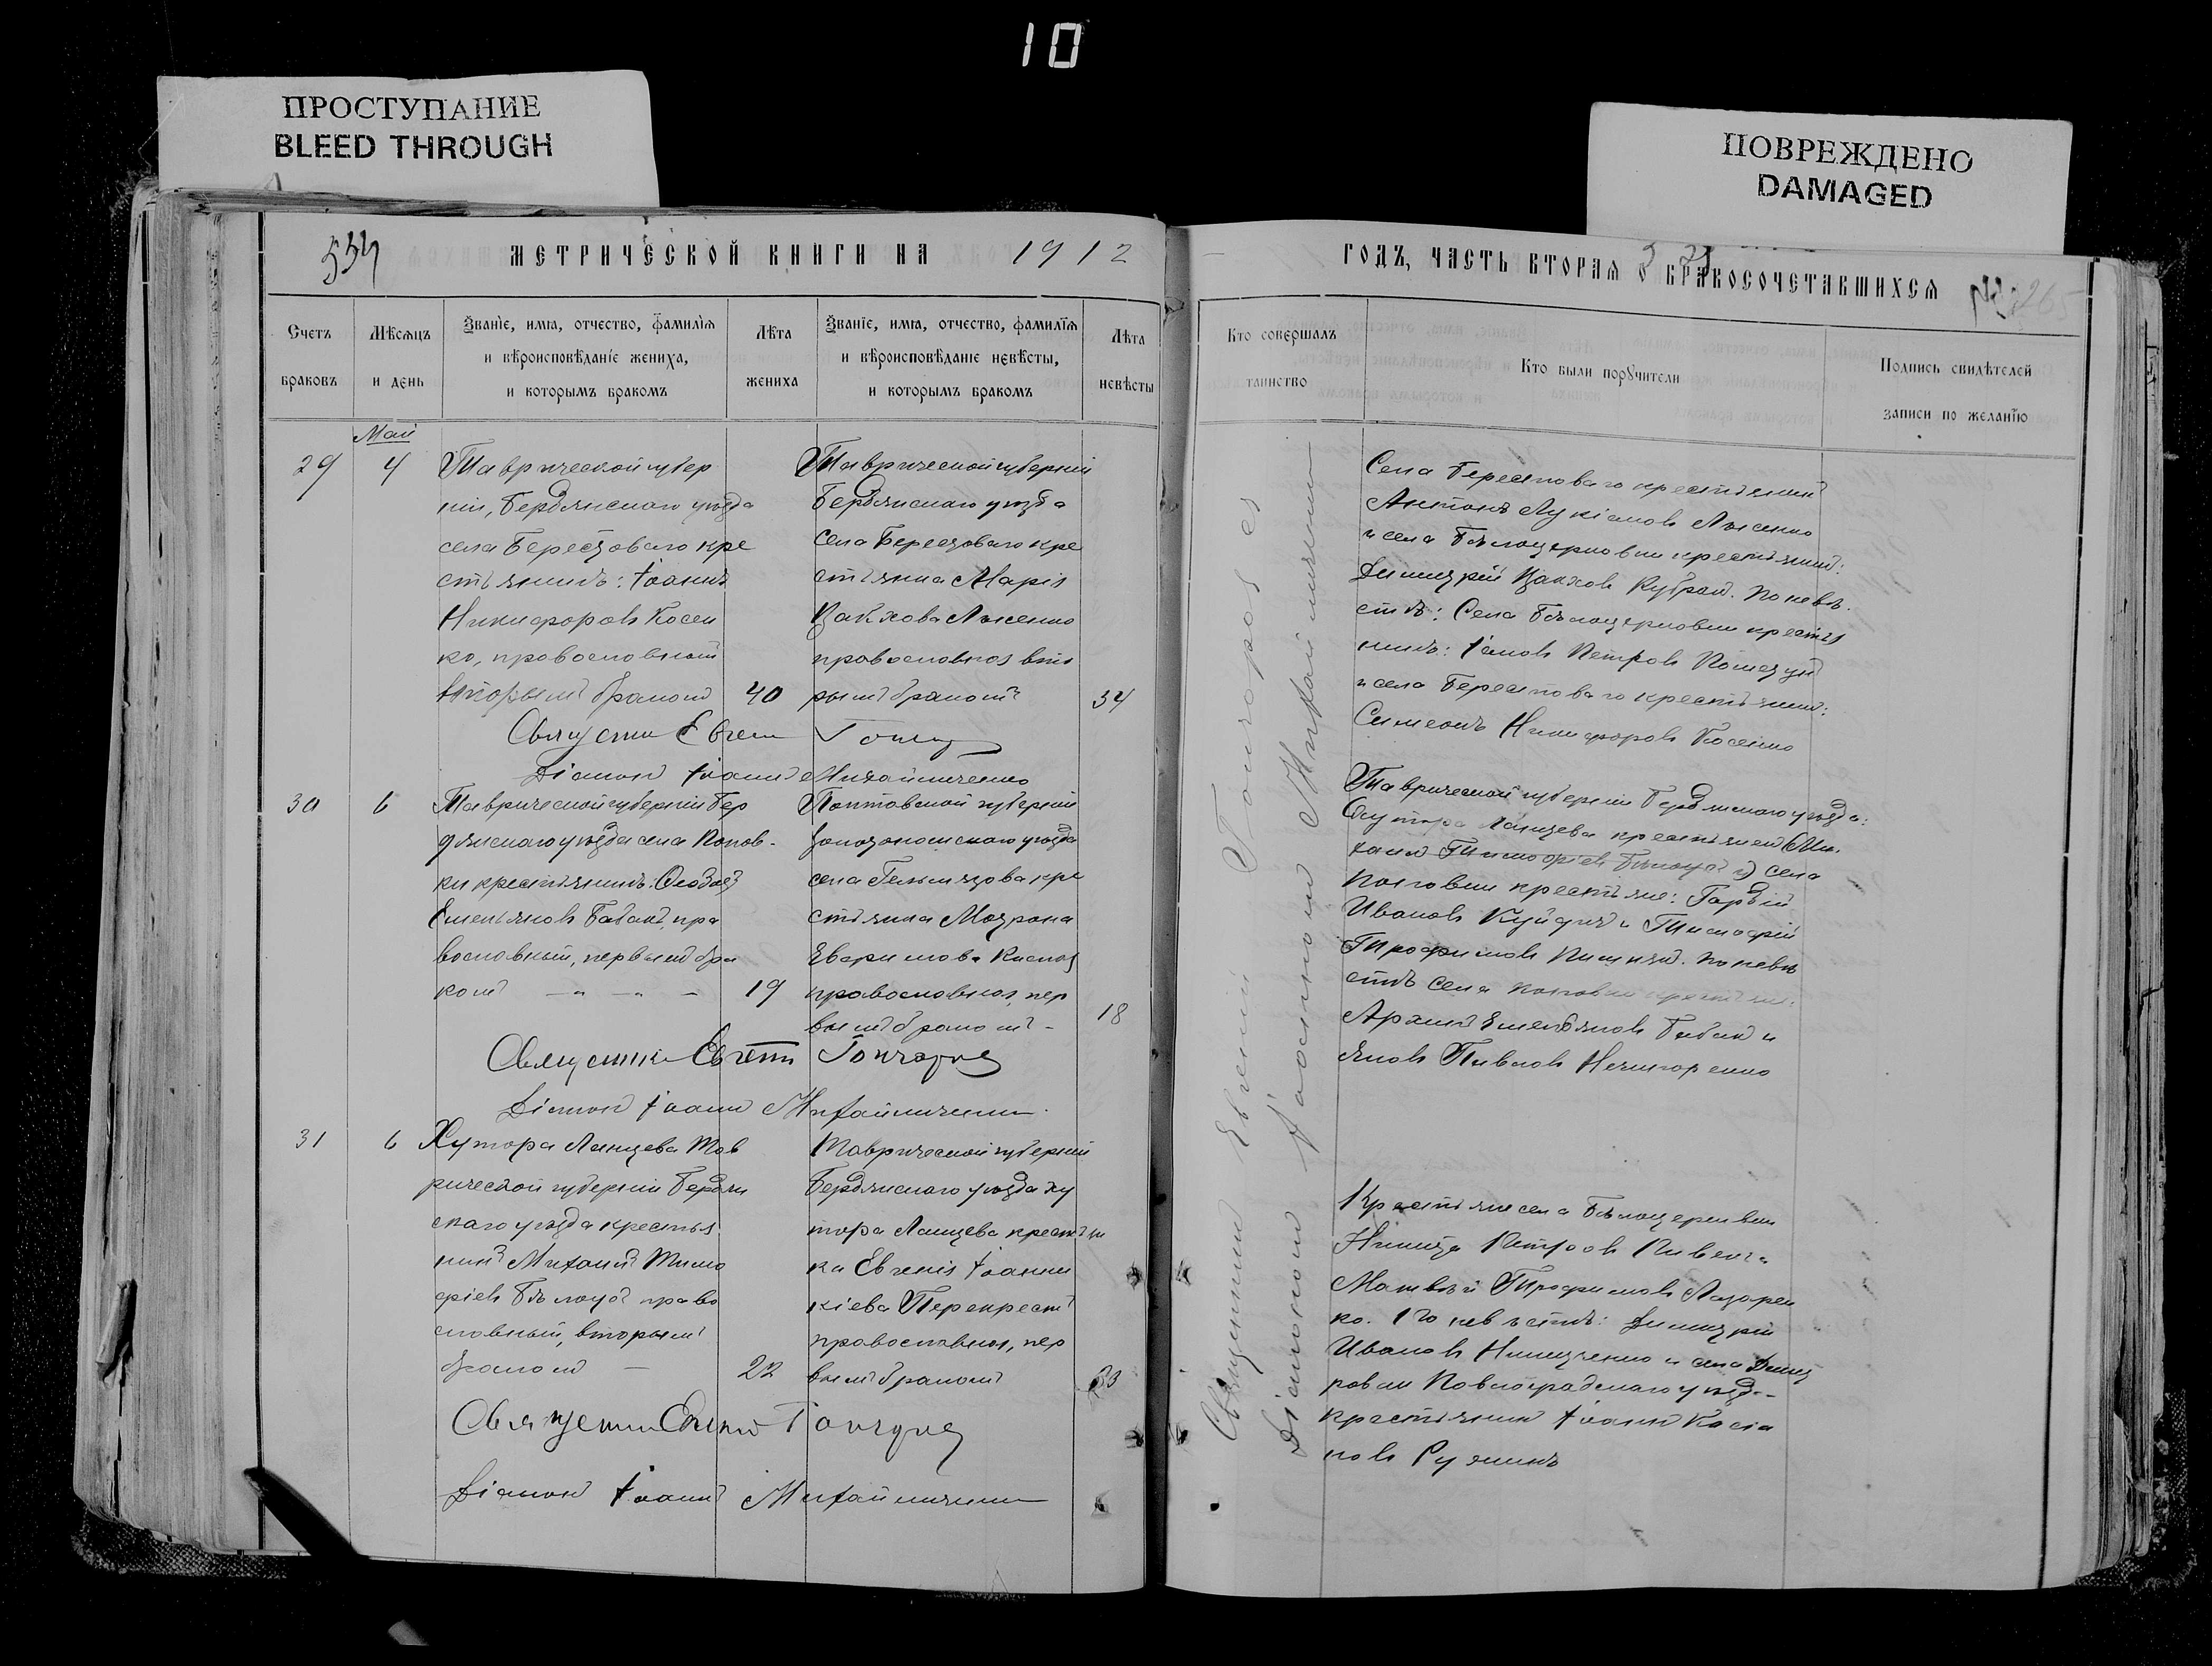 10
ПРОСТУПАНИЕ
BLEED THROUGH
ПОВРЕЖДЕНО
DAMAGED
МЕТРИЧЕСКОЙ КНИГИ НА 1912
ГОДЪ, ЧАСТЬ ВТОРАЯ О БРАКОСОЧЕТАВШИХСЯ
Счетъ браковъ
Мѣсяцъ и день
Званіе, имя, отчество, фамилія
и вѣроисповѣданіе жениха,
и которымъ бракомъ
Лѣта жениха
Званіе, имя, отчество, фамилія
и вѣроисповѣданіе невѣсты,
и которымъ бракомъ
Лѣта невѣсты
Кто совершалъ таинство
Кто были поручители
Подпись свидѣтелей
записи по желанію
Май
29 4
Таврической губер
ніи, Бердянскаго уѣзда
села Берестоваго кре
стьянинъ: Іоаннъ
Никифоровъ Косен
ко, православный
вторымъ бракомъ 40
Таврической губерніи
Бердянскаго уѣзда
села Берестоваго кре
стьянка Марія
Вакхова Лысенко
православная вто
рымъ бракомъ 34
Священникъ Евгеній Гончаровъ
Діаконъ Іоаннъ Михайличенко
Села Берестоваго крестьянинъ
Антонъ Лукіановъ Лысенко
и села Бѣлоцерковки крестьянинъ:
Димитрій Вакховъ . По невѣ
стѣ: Села Бѣлоцерковки крестья
нинъ: Іаковъ Петровъ
и села Берестоваго крестьянинъ:
Симеонъ Никифоровъ Косенко
30 6
Таврической губерніи Бер
дянскаго уѣзда села Попов-
ки крестьянинъ: Ѳеодоръ
Емельяновъ Бабакъ, пра
вославный, первымъ бра
комъ 19
Полтавской губерніи
Золотоношскаго уѣзда
села Гельмязова кре
стьянка Матрона
православная, пер
вымъ бракомъ - 18
Священникъ Евгеній Гончаровъ
Діаконъ Іоаннъ Михайличенко
Таврической губерніи Бердянскаго уѣзда:
Хутора Ланцева крестьянинъ Ми
хаилъ Тимофіевъ и села
Поповки крестьяне: Гордій
Ивановъ и Тимофій
Трофимовъ . По невѣ
стѣ села Поповки крестьяне:
Емельяновъ Бабакъ и
Яковъ Павловъ Нечипоренко
31 6
Хутора Ланцева Тав
рической губерніи Бердян
скаго уѣзда крестья
нинъ Михаилъ Тимо
фіевъ право
славный, вторымъ
бракомъ — 22
Таврической губерніи
Бердянскаго уѣзда ху
тора Ланцева крестьян
ка Евгенія Іоанни
кіева Перекрестъ
православная, пер
вымъ бракомъ
Священникъ Евгеній Гончаровъ
Діаконъ Іоаннъ Михайличенко
Крестьяне села Бѣлоцерковки
Никита Петровъ и
Матвѣй Трофимовъ Лазарен
ко. По невѣстѣ: Димитрій
Ивановъ Никитченко и села Димит
ровки Павлоградскаго уѣзда
крестьянинъ Іоаннъ Касіа
новъ
Священникъ Евгеній Гончаровъ съ
Діакономъ Іоанномъ Михайличенко